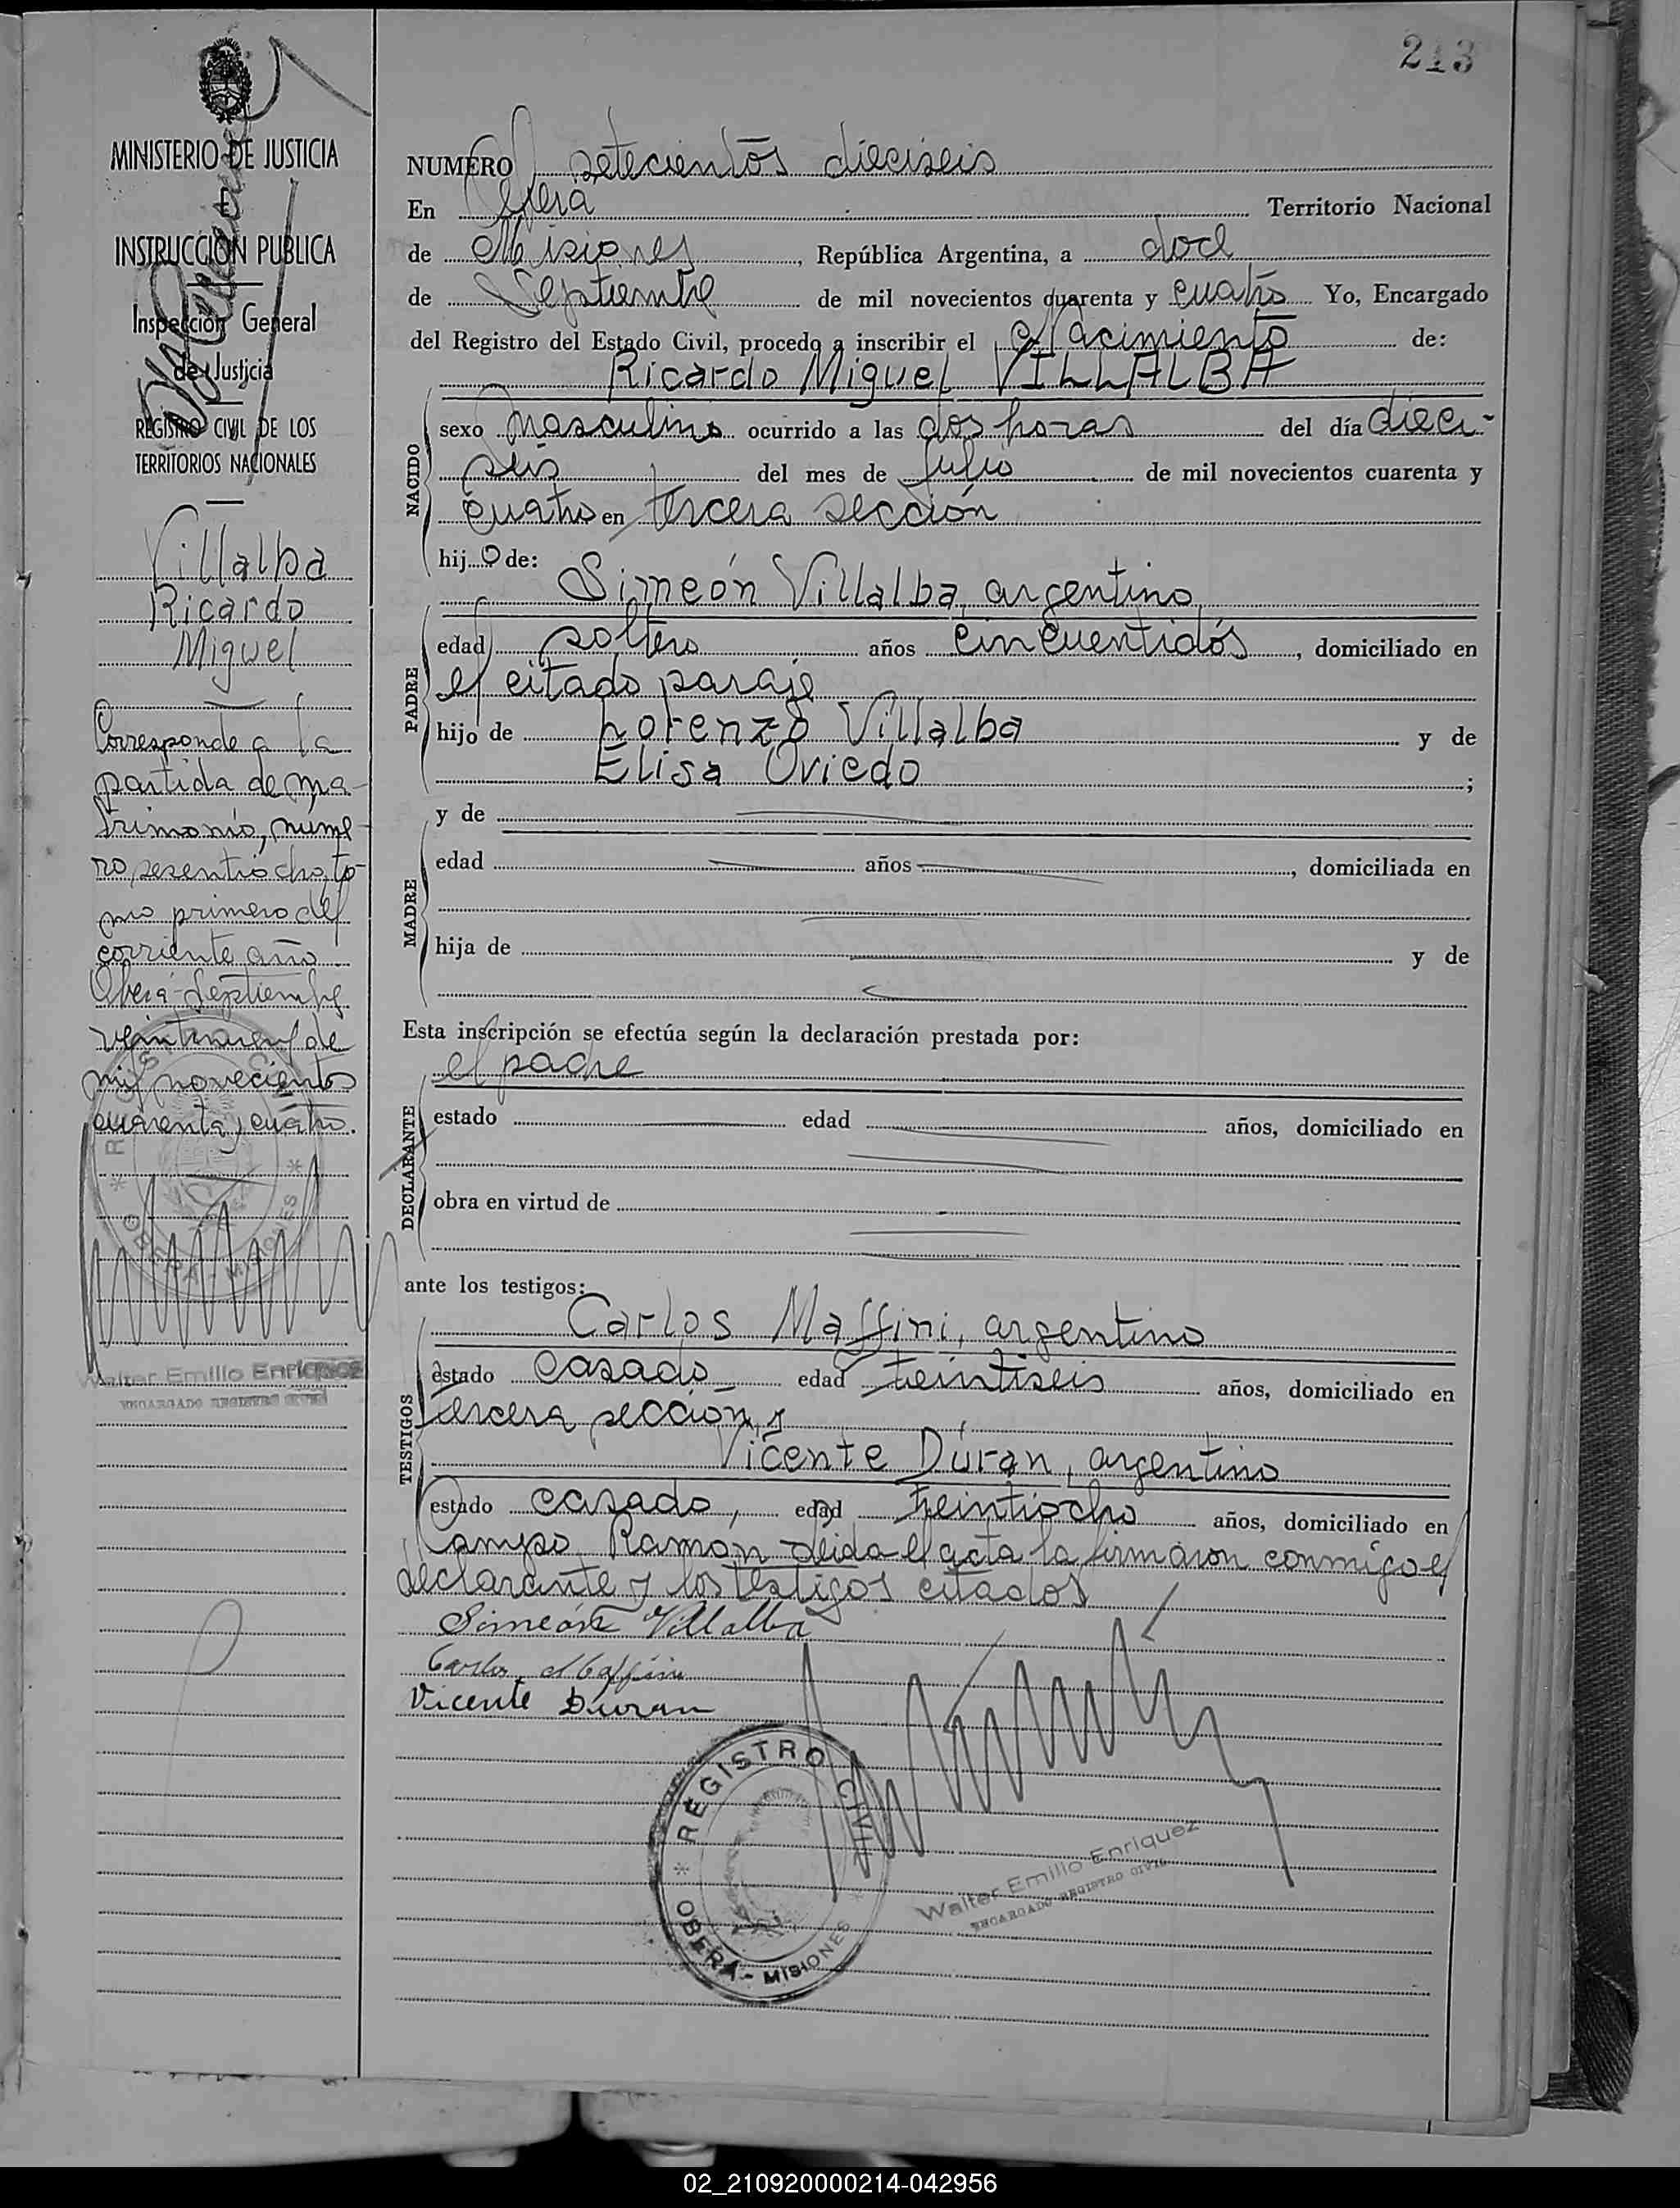 213
MINISTERIO DE JUSTICIA
E
INSTRUCCIÓN PUBLICA
Inspección General
de Justicia
REGISTRO CIVIL DE LOS
TERRITORIOS NACIONALES
Villalba
Ricardo
Miguel
Corresponde a la
partida de ma-
trimonio, nume-
ro sesentiocho, to-
mo primero del
corriente año.
Oberá Septiembre
veintinueve de
mil novecientos
cuarenta y cuatro.
Walter Emilio Enriquez
ENCARGADO REGISTRO CIVIL
NUMERO setecientos dieciseis
En Oberá Territorio Nacional
de Misiones, República Argentina, a doce
de Septiembre de mil novecientos cuarenta y cuatro Yo, Encargado
del Registro del Estado Civil, procedo a inscribir el Nacimiento de:
Ricardo Miguel VILLALBA
NACIDO
sexo masculino ocurrido a las dos horas del día dieci-
seis del mes de Julio de mil novecientos cuarenta y
cuatro en tercera sección
hijo de:
Simeón Villalba, argentino,
PADRE
edad soltero años cincuentidós, domiciliado en
el citado paraje
hijo de Lorenzo Villalba y de
Elisa Oviedo ;
y de
MADRE
edad años , domiciliada en
hija de y de
Esta inscripción se efectúa según la declaración prestada por:
el padre
DECLARANTE
estado edad años, domiciliado en
obra en virtud de
ante los testigos:
Carlos Maffini, argentino
TESTIGOS
estado casado edad treintiseis años, domiciliado en
tercera sección y
Vicente Durán, argentino
estado casado, edad treintiocho años, domiciliado en
Campo Ramón leida el acta la firmaron conmigo el
declarante y los testigos citados
Simeón Villalba
Carlos Maffini
Vicente Duran
REGISTRO CIVIL
OBERÁ - MISIONES
Walter Emilio Enriquez
ENCARGADO REGISTRO CIVIL
02_210920000214-042956